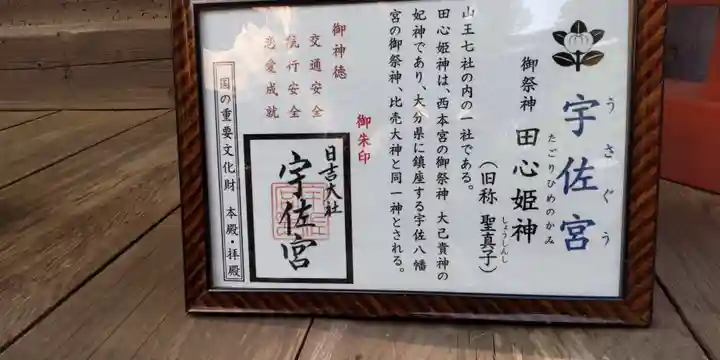 宇佐宮
うさぐう
御祭神 田心姫神
たごりひめのかみ
(旧称 聖真子)
しょうしんし
山王七社の内の一社である。
田心姫神は、西本宮の御祭神 大己貴神の
妃神であり、大分県に鎮座する宇佐八幡
宮の御祭神、比売大神と同一神とされる。
御神徳
交通安全
航行安全
恋愛成就
御朱印
日吉大社
宇佐宮
国の重要文化財 本殿・拝殿